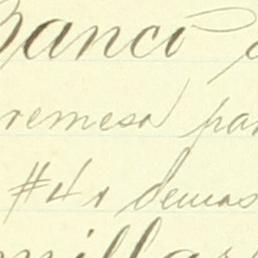 Banco
remesa par
#4. demas
millar